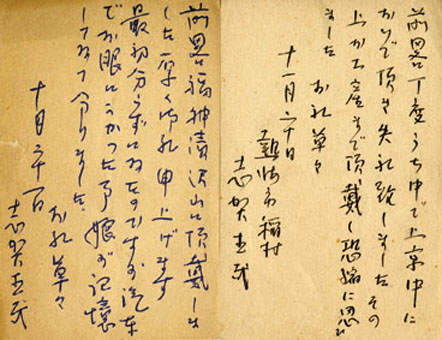 前略 丁度うち中で上京中に
おいで頂き失礼致しましたその
上お土産まで頂戴し恐縮に思ひ
ました お礼草々
十一月二十日
熱海市稲村
志賀直哉
前略 福神漬沢山に頂戴しま
した厚く御礼申上げます
最初分らずにゐたのですが汽車
でお眼にかかった事、娘が記憶
してゐて分りました
お礼 草々
十月二十一日
志賀直哉